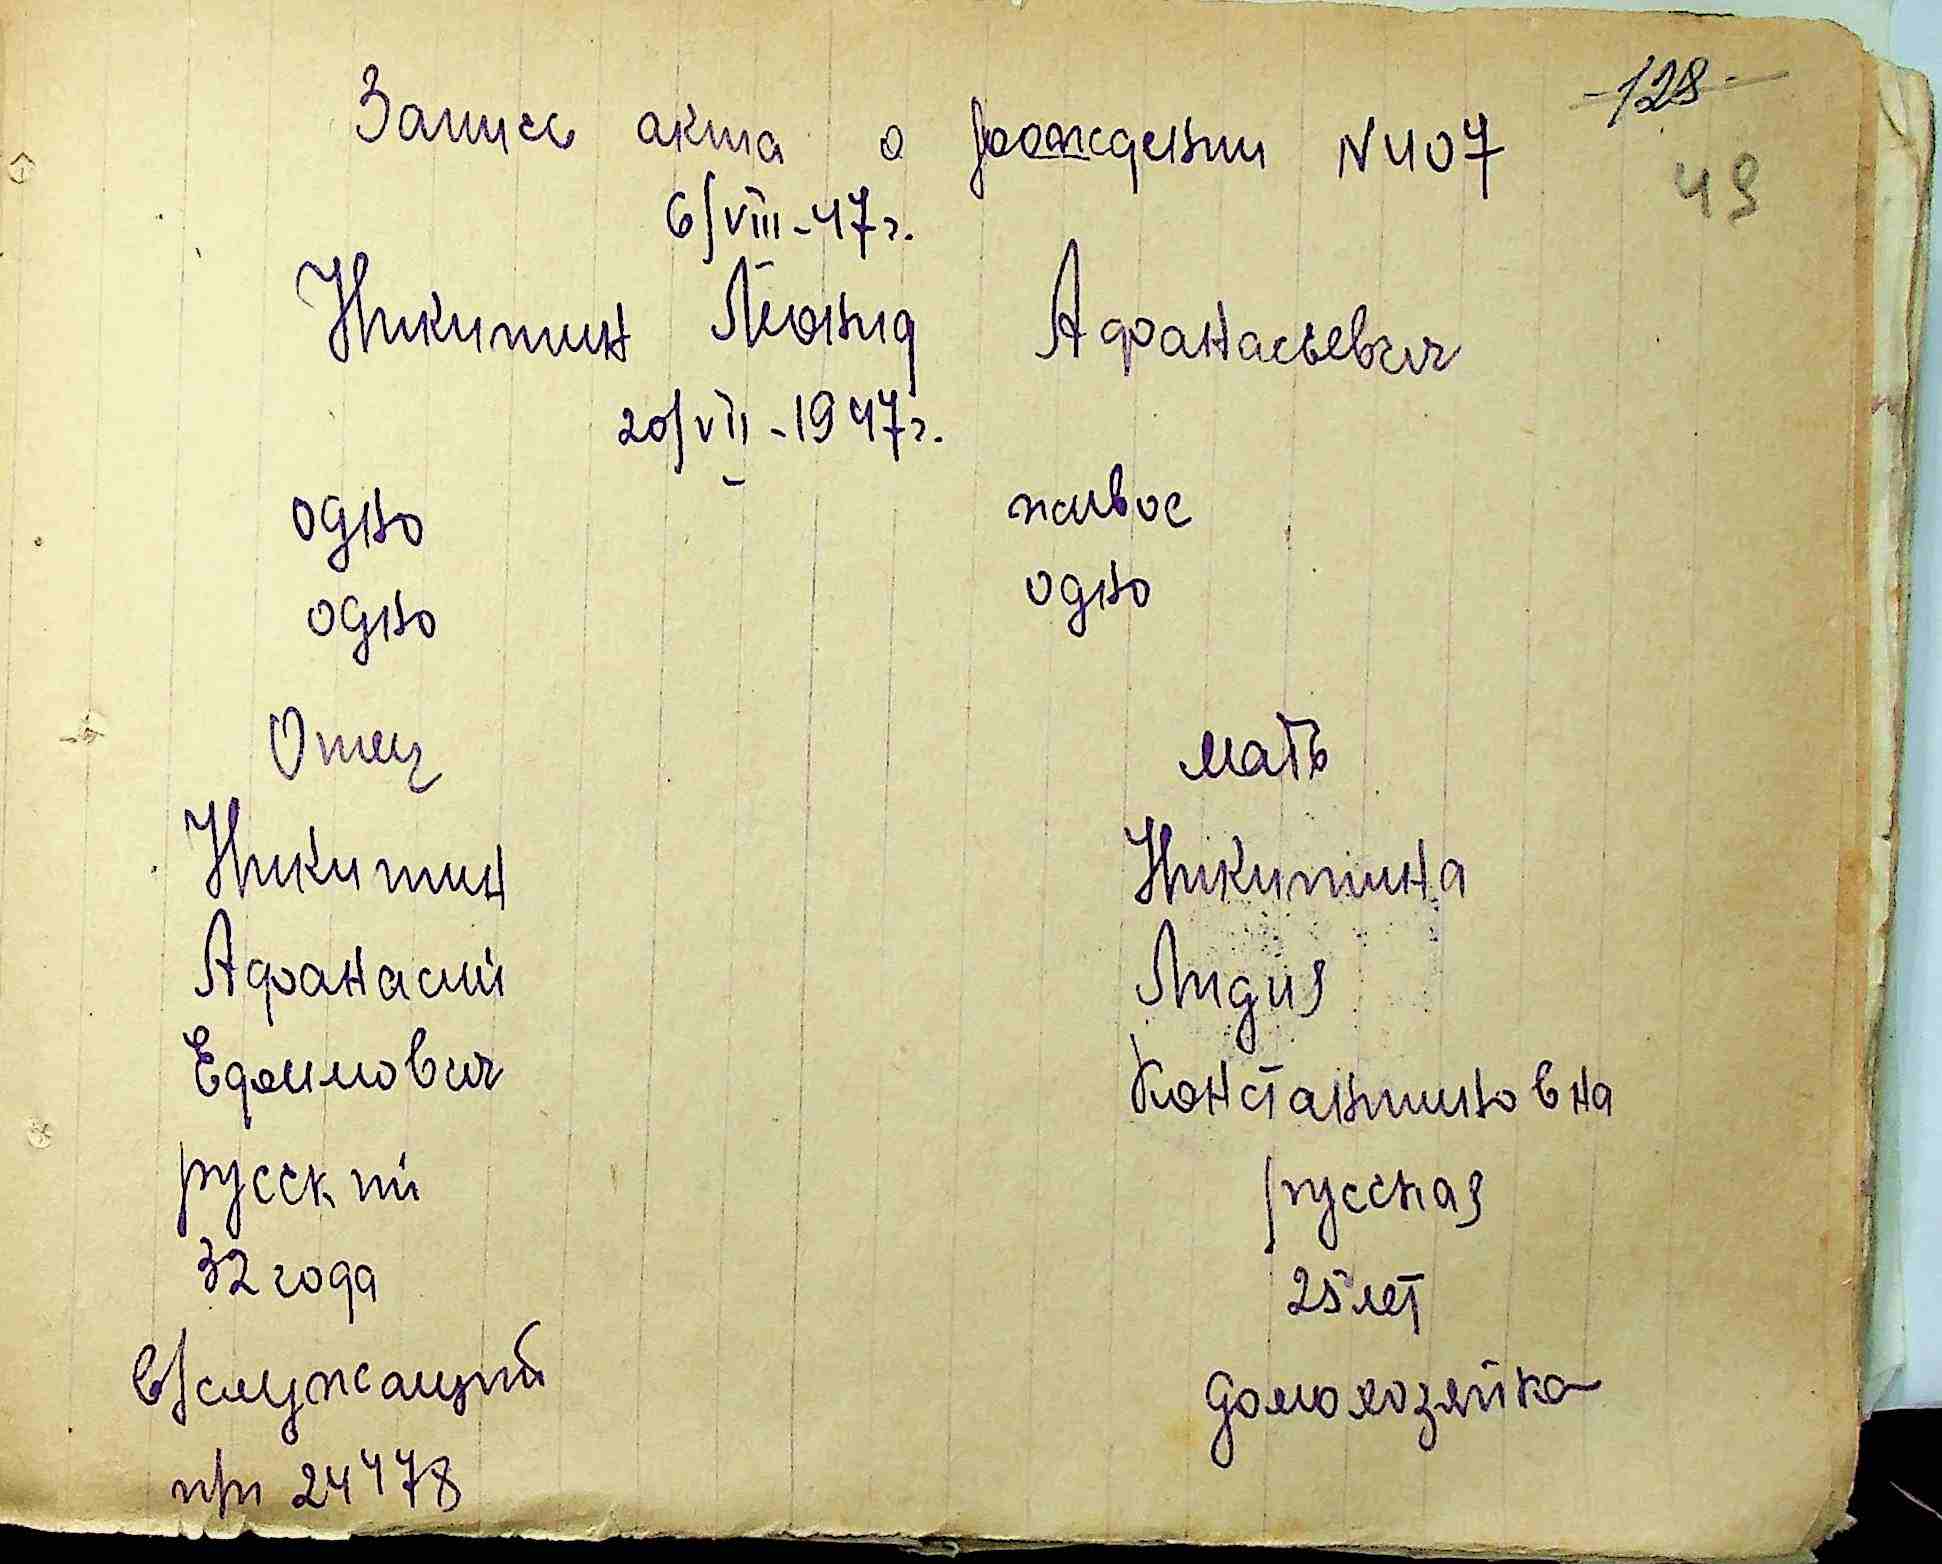 -128-
49
Запись акта о рождении N 407
6/VIII-47г.
Никитин Леонид Афанасьевич
20/VII-1947г.
одно живое
одно одно
Отец мать
Никитин Никитина
Афанасий Лидия
Ефимович Константиновна
русский русская
32 года 25 лет
в/служащий домохозяйка
п/п 24478